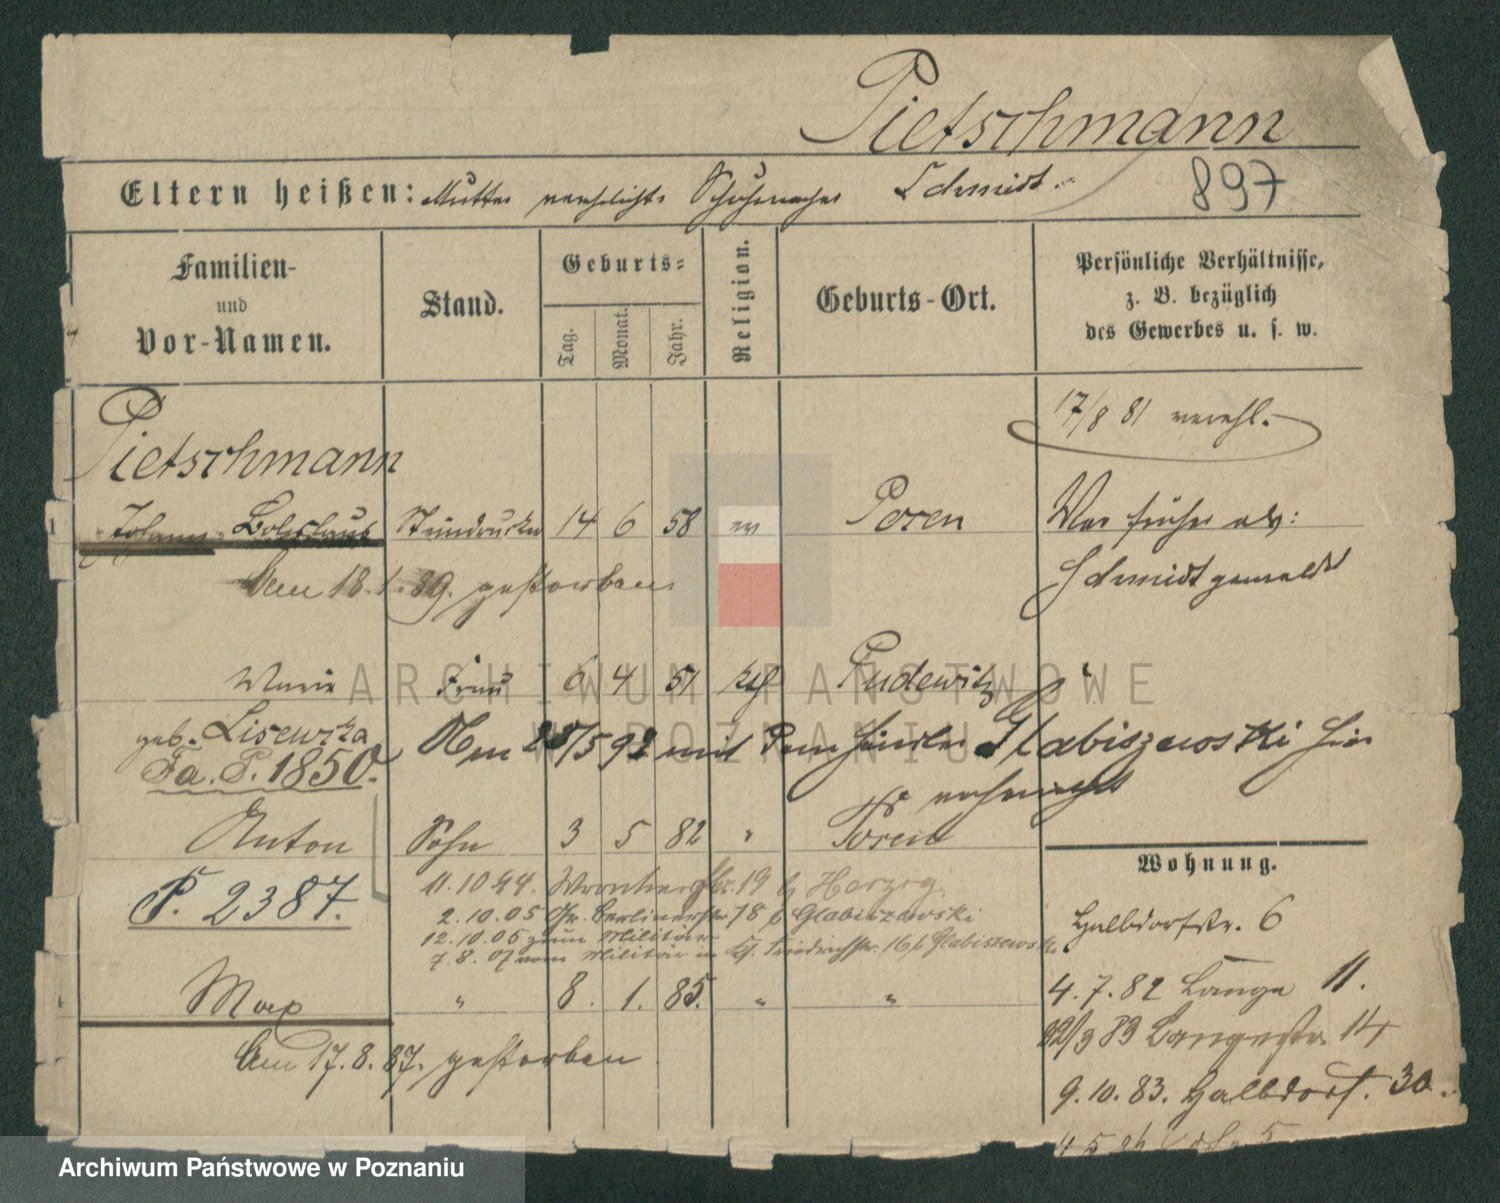 Pietschmann
Eltern heißen: Mutter verehelichte Schuhmacher Schmidt.
897
Familien-
und
Vor-Namen.
Stand.
Geburts-
Tag.
Monat.
Jahr.
Religion.
Geburts-Ort.
Persönliche Verhältnisse,
z. B. bezüglich
des Gewerbes u. s. w.
17/8 81 verehl.
Pietschmann
1 Johann Boleslaus Steindrucker 14 6 58 ev Posen War früher als:
Schmidt gemeldet
Am 18.1.89. gestorben.
Marie Frau 6 4 51 kth Pudewitz
geb. Lisewska
Am 25/5 92 mit dem Händler Glabiszewski hier
Fa. P. 1850.
Anton Sohn 3 5 82 " Posen
P. 2387.
11.10.94. Wronkerstr. 19 b Herzog
2.10.05 Gr. Berlinerstr. 78 b Glabiszewski
12.10.05 zum Militär
7.8.07 vom Militär in Friedrichstr. 16 b Glabiszewski
Wohnung.
Halbdorfstr. 6
Max " 8. 1. 85. " "
4.7.82 Lange 11.
Am 17.8.87. gestorben
/9 83 Langestr. 14
9.10.83. Halbdorf. 30.
ARCHIWUM PAŃSTWOWE
W POZNANIU
Archiwum Państwowe w Poznaniu